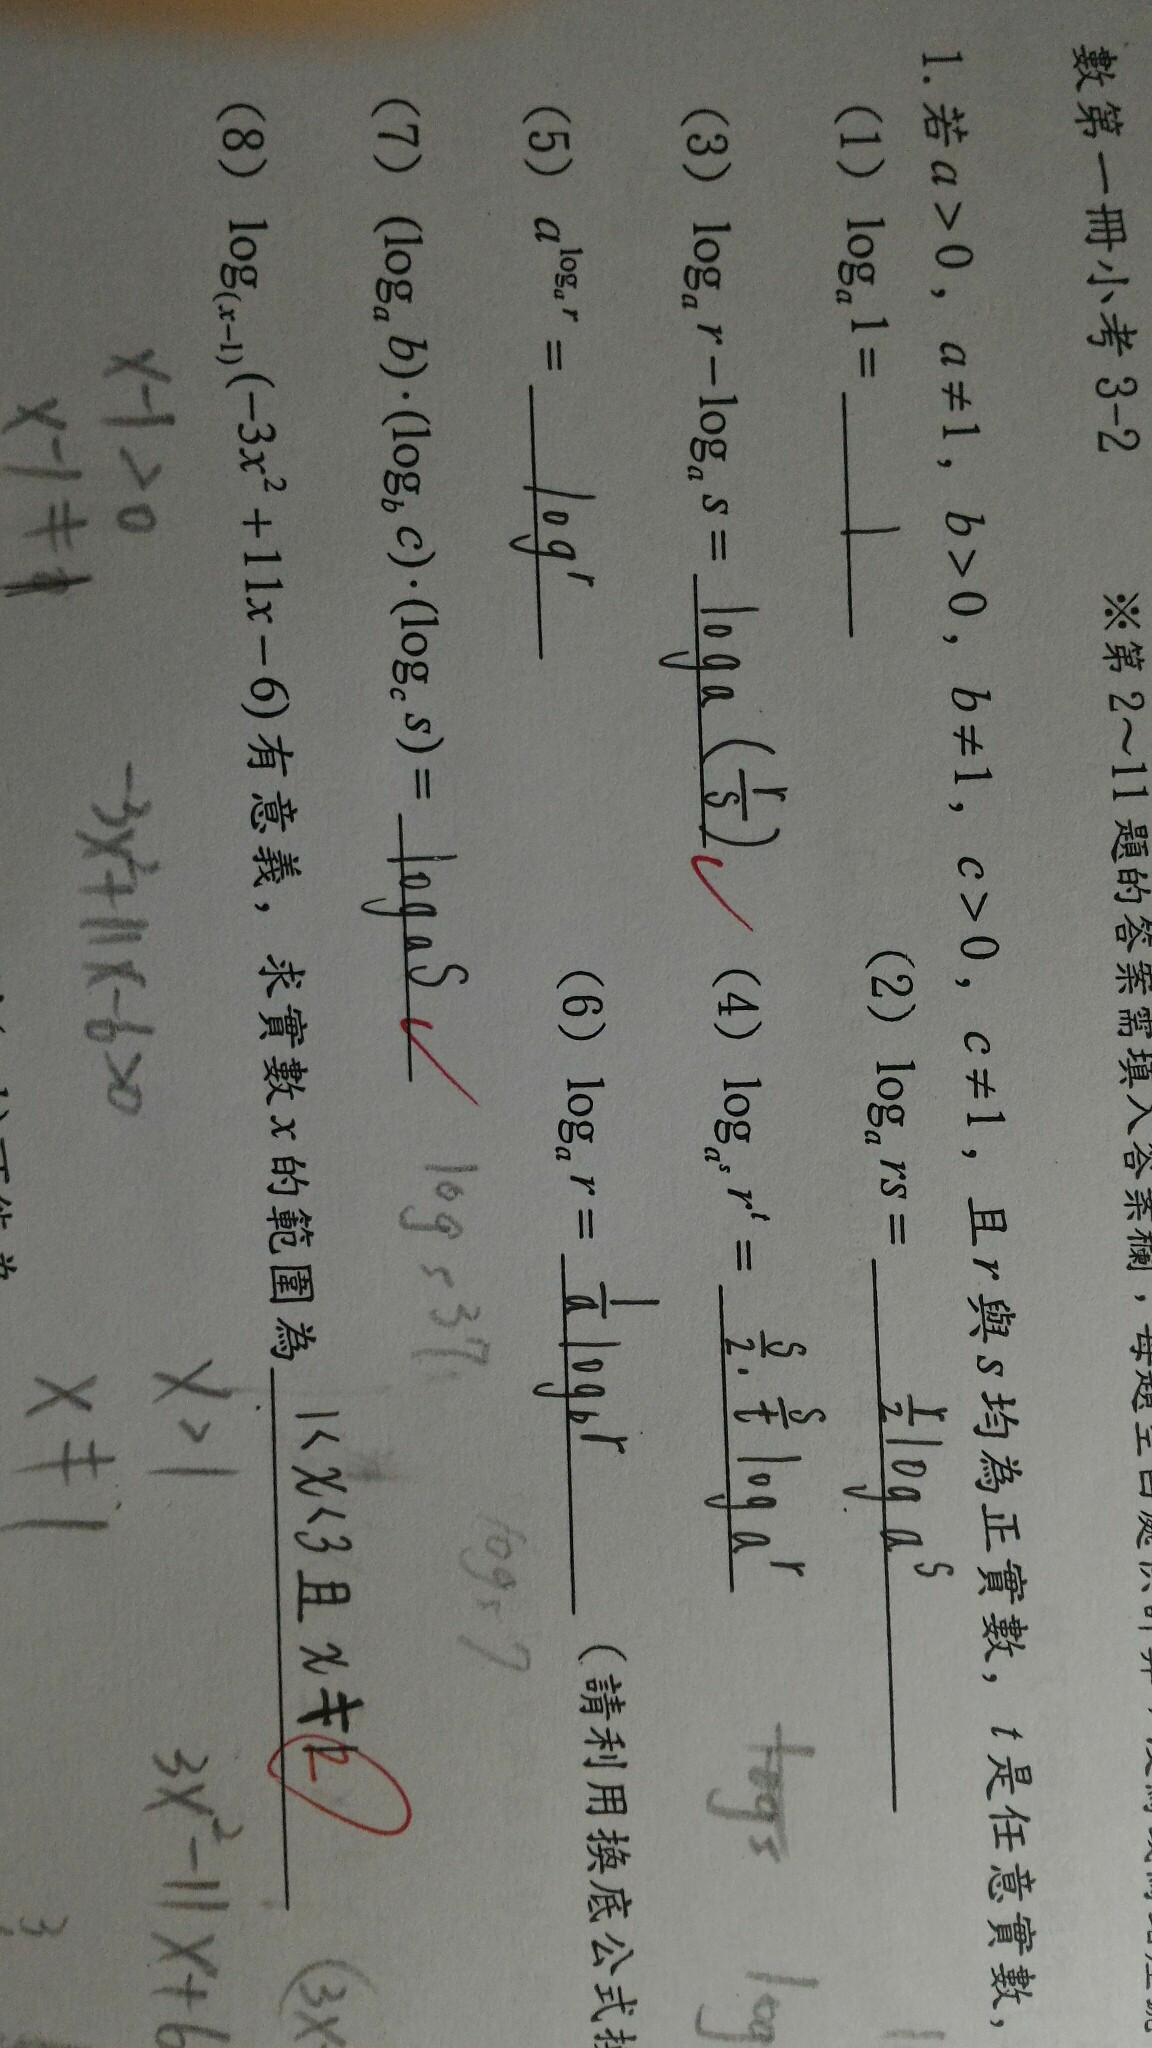 數第一冊小考 3-2 ※第 2~11 題的答案需填入答案欄，每題空白處供計算
1. 若 a>0, a≠1, b>0, b≠1, c>0, c≠1, 且 r 與 s 均為正實數, t 是任意實數,
(1) logₐ1= 1 (2) logₐ rs = r/2 log a^s
(3) logₐ r-logₐ s= log a (r/s) (4) log_{a^s} r^t = s/2 · s/t log a^r
(5) a^{logₐ r} = log^r (6) logₐ r= 1/a log b^r (請利用換底公式
(7) (logₐ b)·(log_b c)·(log_c s)= log a^s
(8) log_{(x-1)}(-3x²+11x-6) 有意義, 求實數 x 的範圍為 1<x<3 且 x≠2
x-1>0 -3x²+11x-6>0 x>1 3x²-11x+6
x-1≠1 x≠1